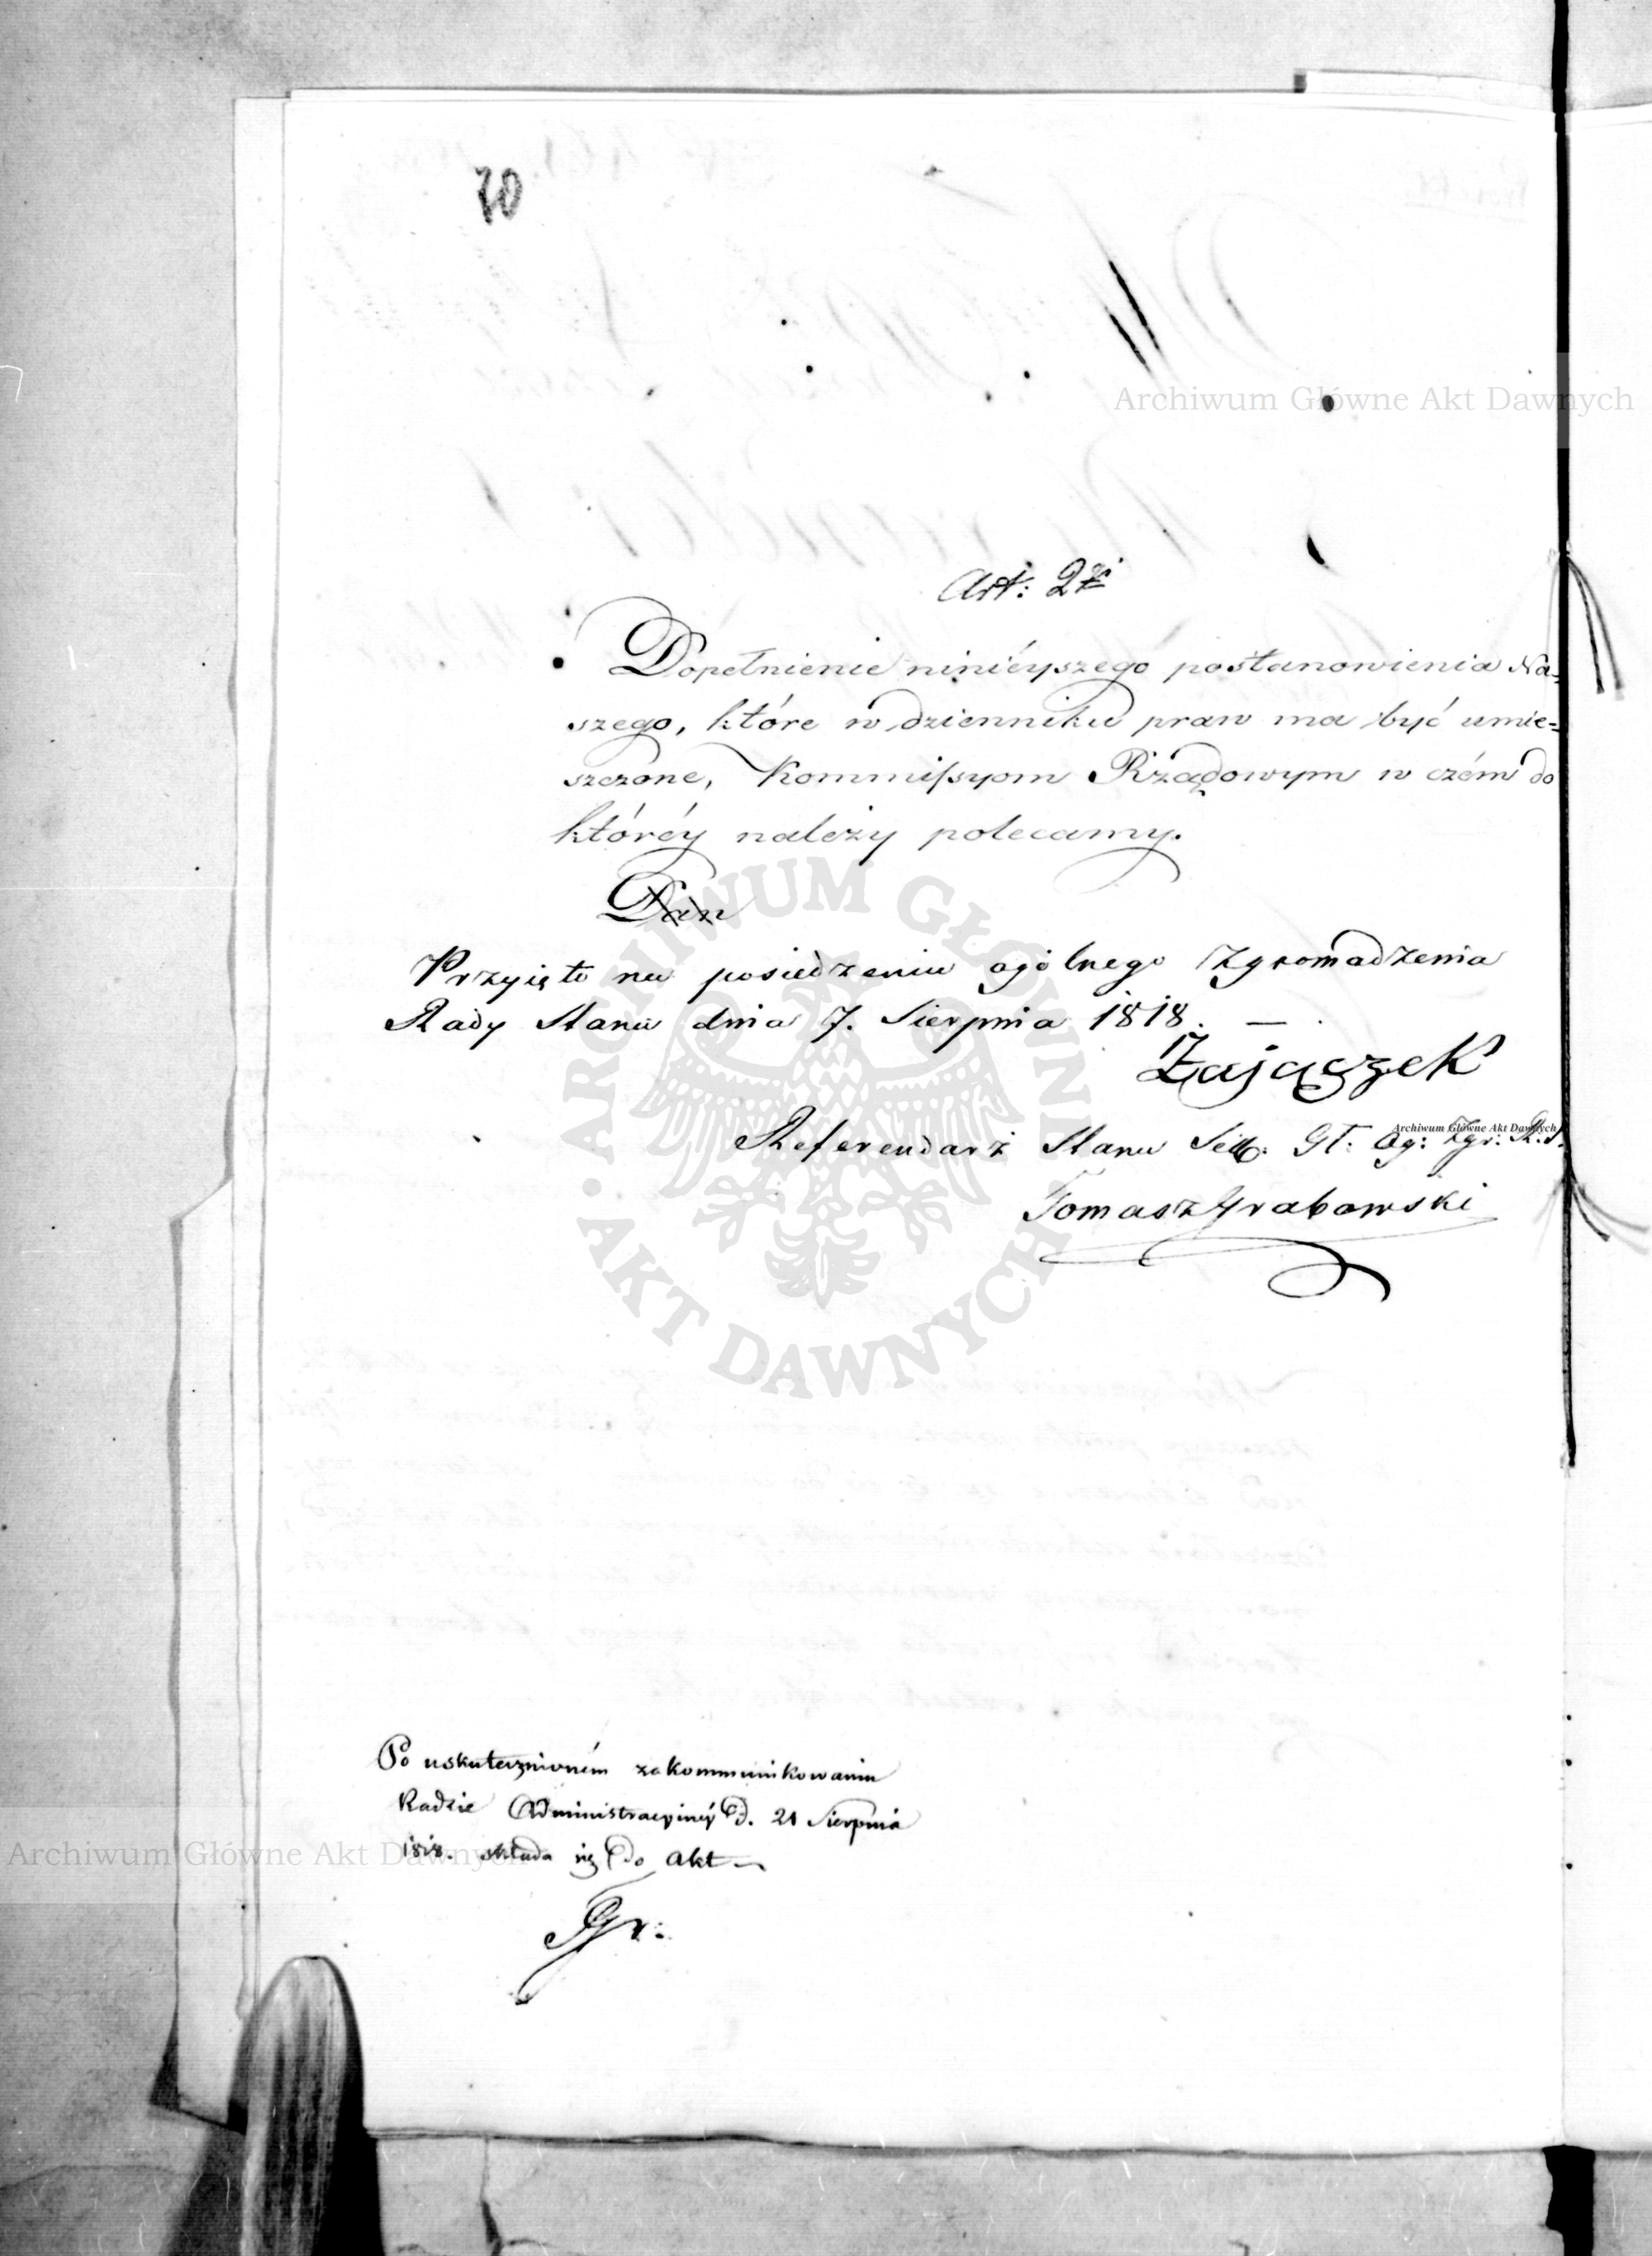 70
Archiwum Główne Akt Dawnych
Art: 2gi
Dopełnienie ninieyszego postanowienia Na=
szego, które w dzienniku praw ma być umie=
szczone, Kommissyom Rządowym w czém do
któréy należy polecamy.
Dan
Przyięto na posiedzeniu ogólnego Zgromadzenia
Rady Stanu dnia 7. Sierpnia 1818. —
Zajączek
Archiwum Główne Akt Dawnych
Referendarz Stanu Sekr: Gł: Og: Zgr: R. S.
Tomasz Grabowski
ARCHIWUM GŁÓWNE • AKT DAWNYCH •
Po uskutecznioném zakommunikowaniu
Radzie Administracyinéy d. 21 Sierpnia
1818. składa się do akt —
Archiwum Główne Akt Dawnych
Gr: